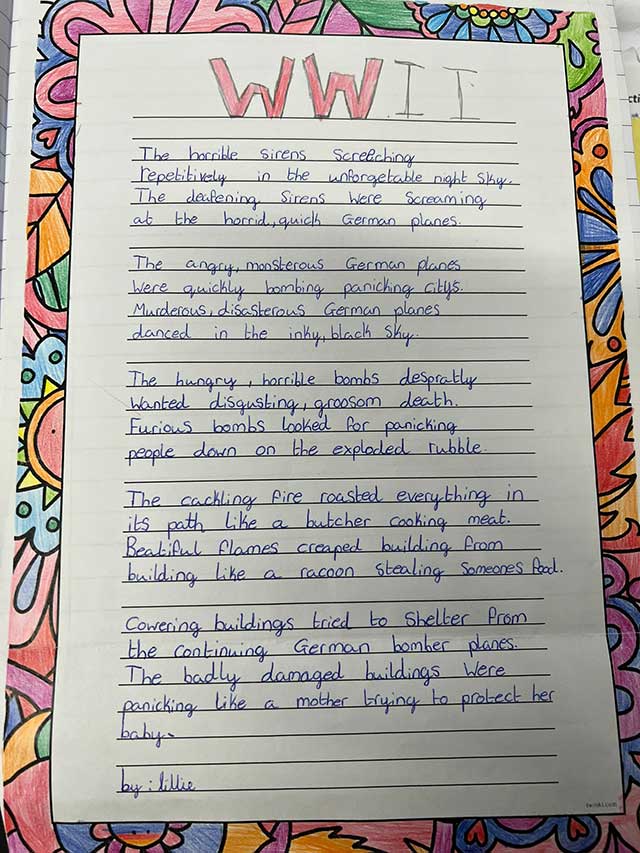 WWII
The horrible sirens screeching
repetitively in the unforgetable night sky.
The deafening sirens were screaming
at the horrid, quick German planes.
The angry, monsterous German planes
were quickly bombing panicking citys.
Murderous, disasterous German planes
danced in the inky, black sky.
The hungry, horrible bombs despratly
wanted disgusting, groosom death.
Furious bombs looked for panicking
people down on the exploded rubble.
The cackling fire roasted everything in
its path like a butcher cooking meat.
Beatiful flames creaped building from
building like a racoon stealing someones food.
Cowering buildings tried to shelter from
the continuing German bomber planes.
The badly damaged buildings were
panicking like a mother trying to protect her
baby.
by: lillie
twinkl.com